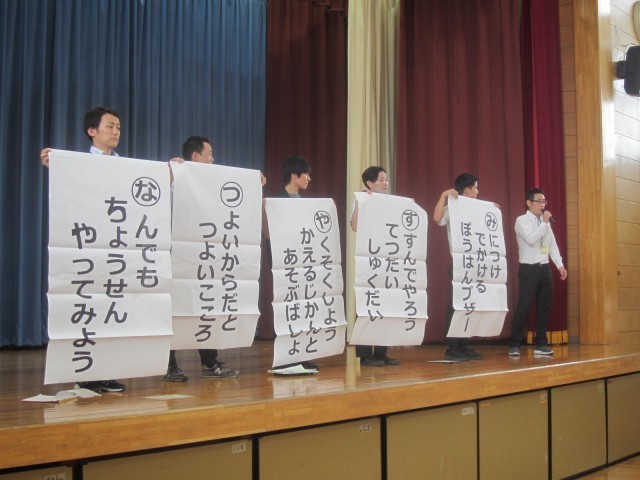 なんでも
ちょうせん
やってみよう
つよいからだと
つよいこころ
やくそくしよう
かえるじかんと
あそぶばしょ
すすんでやろう
てつだい
しゅくだい
みにつけ
でかける
ぼうはんブザー